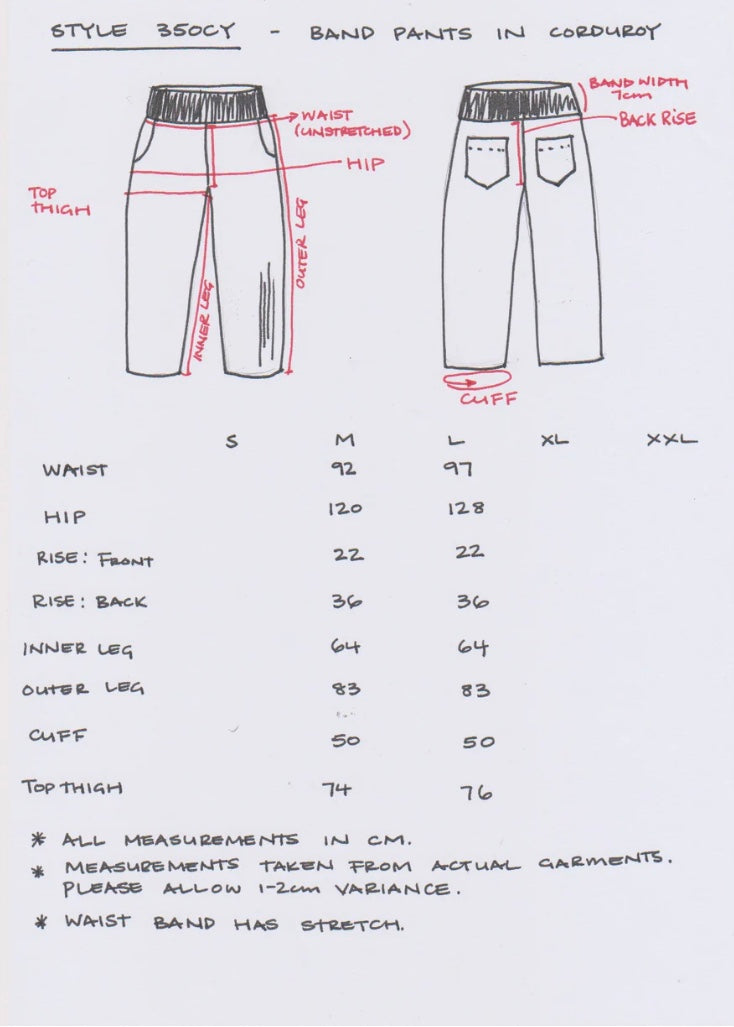 STYLE 350CY - BAND PANTS IN CORDUROY
BAND WIDTH
7cm
WAIST
(UNSTRETCHED)
BACK RISE
HIP
TOP
THIGH
OUTER LEG
INNER LEG
CUFF
S M L XL XXL
WAIST 92 97
HIP 120 128
RISE: FRONT 22 22
RISE: BACK 36 36
INNER LEG 64 64
OUTER LEG 83 83
CUFF 50 50
TOP THIGH 74 76
* ALL MEASUREMENTS IN CM.
* MEASUREMENTS TAKEN FROM ACTUAL GARMENTS.
PLEASE ALLOW 1-2cm VARIANCE.
* WAIST BAND HAS STRETCH.